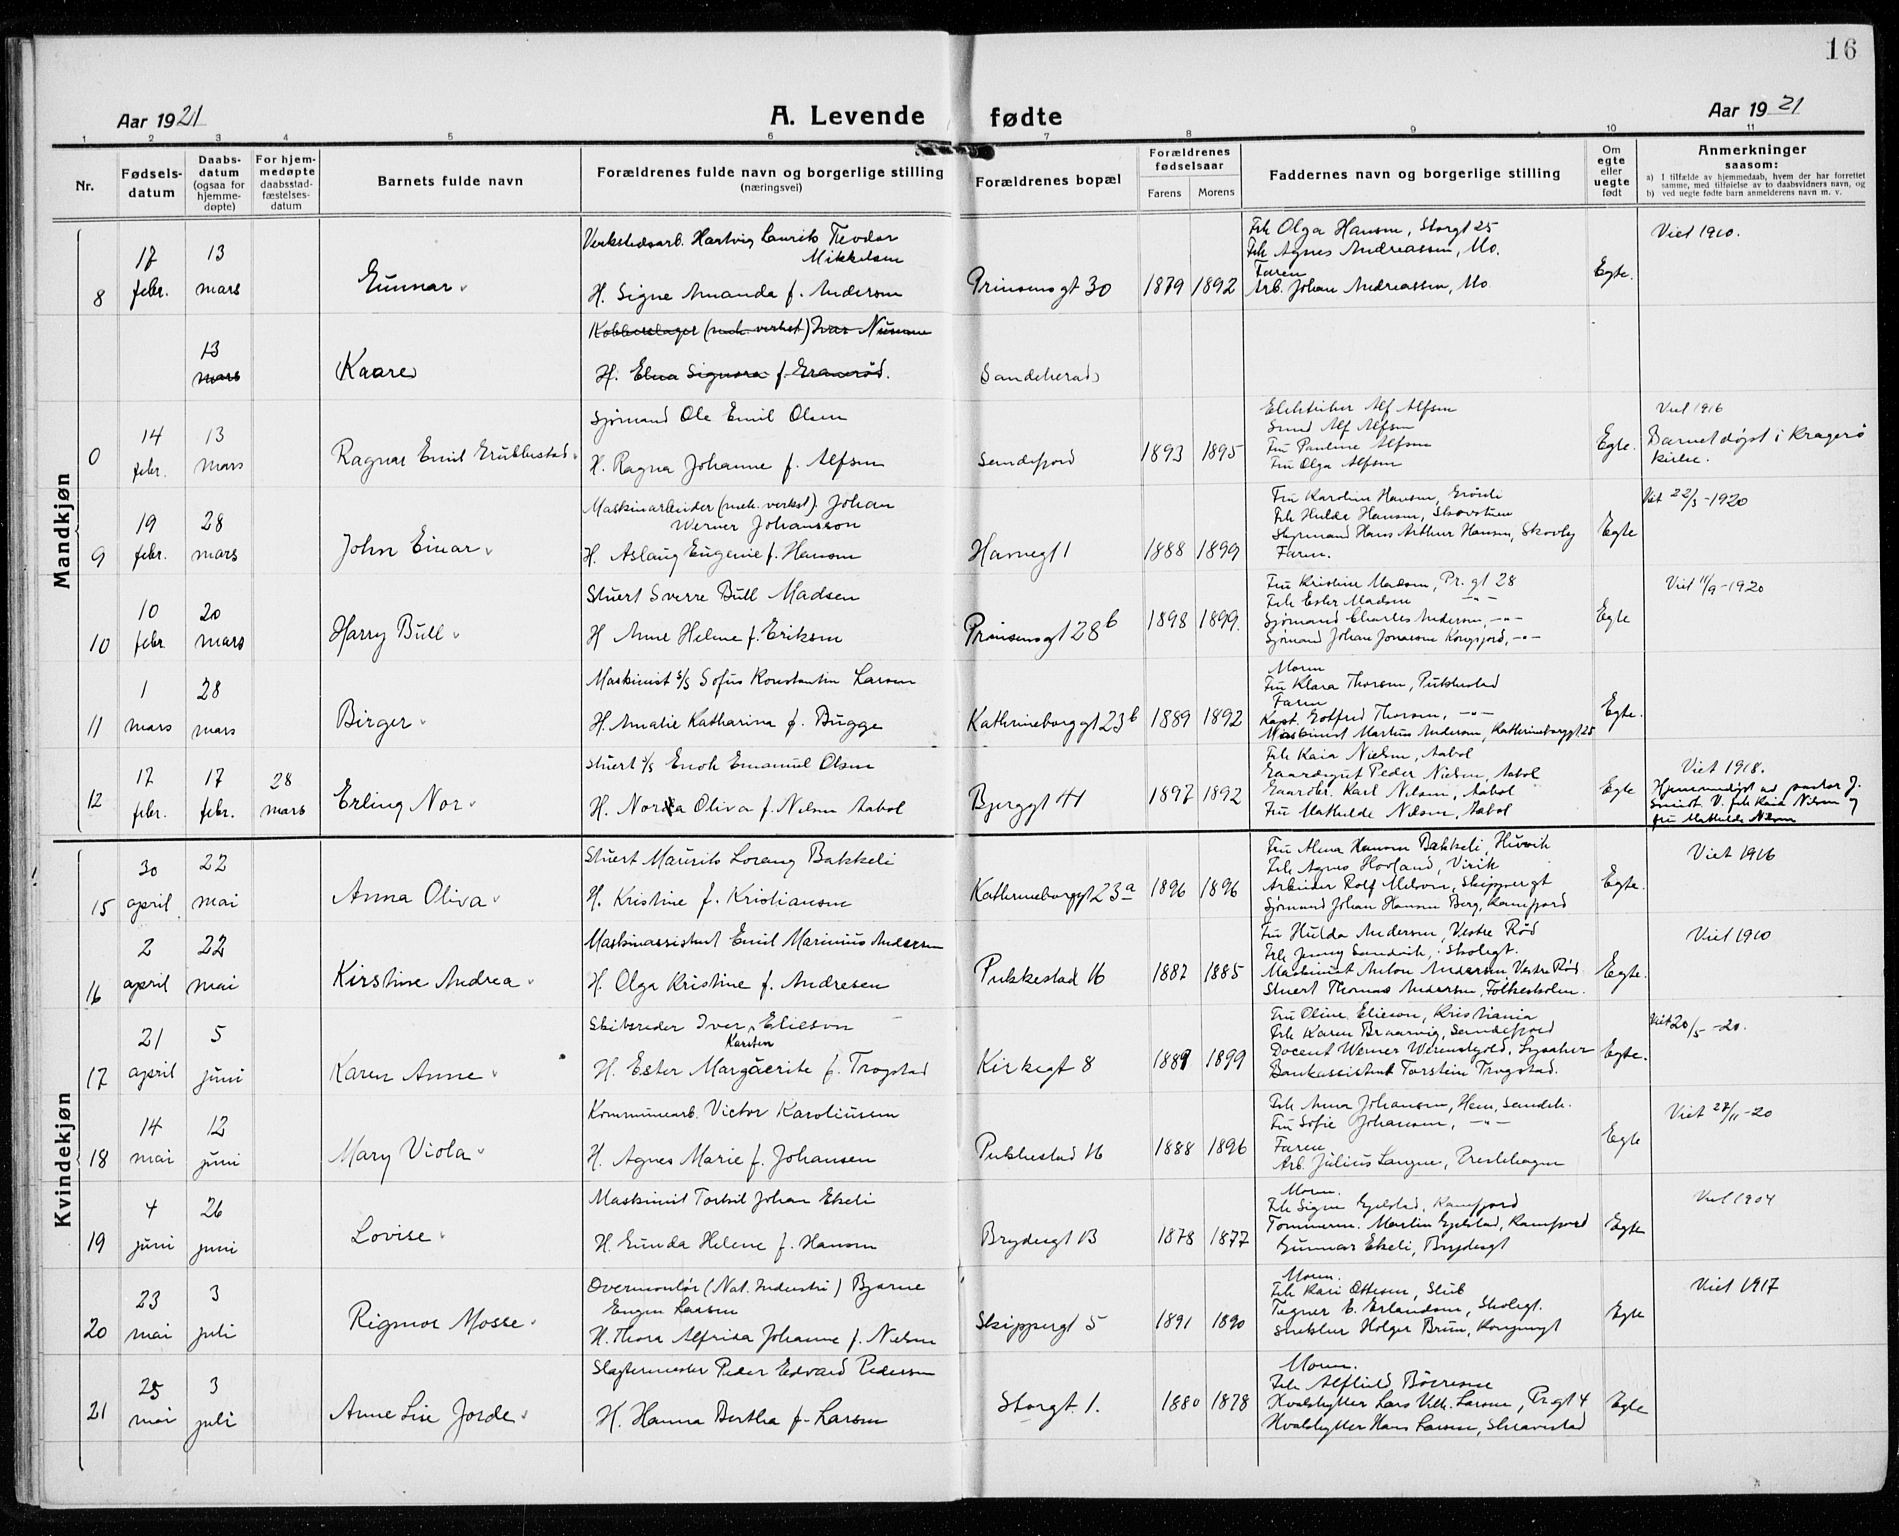 16
Aar 1921
A. Levende fødte
Aar 1921
1 2 3 4 5 6 7 8 9 10 11
Nr.
Fødsels-
datum
Daabs-
datum
(ogsaa for
hjemme-
døpte)
For hjem-
medøpte
daabsstad-
fæstelses-
datum
Barnets fulde navn
Forældrenes fulde navn og borgerlige stilling
(næringsvei)
Forældrenes bopæl
Forældrenes
fødselsaar
Farens Morens
Faddernes navn og borgerlige stilling
Om
egte
eller
uegte
født
Anmerkninger
saasom:
a) I tilfælde av hjemmedaab, hvem der har forrettet
samme, med tilføielse av to daabsvidners navn, og
b) ved uegte fødte barn anmelderens navn m. v.
Mandkjøn
8
17
febr.
13
mars
Gunnar
Verkstedsarb. Hartvig Laurits Teodor
Mikkelsen
H. Signe Amanda f. Andersen
Prinsensgt 30
1879 1892
Frk Olga Hansen, Storgt 25
Frk Agnes Andreassen, Mo.
Faren
Arb. Johan Andreassen, Mo
Egte.
Viet 1910.
13
mars
Kaare
Kobberslager (mek. verkst) Ivar
H. Elna Signora f.
Sandeherad
0
14
febr.
13
mars
Ragnar Emil Grubbestad
Sjømand Ole Emil Olsen
H. Ragna Johanne f. Alfsen
Sandefjord
1893 1895
Elektriker Alf Alfsen
Smed Alf Alfsen
Fru Pauline Alfsen
Fru Olga Alfsen
Egte.
Viet 1916
Barnet døpt i Kragerø
kirke.
9
19
febr.
28
mars
John Einar
Maskinarbeider (mek. verkst). Johan
Werner Johansson
H. Aslaug Eugenie f. Hansen
Havnegt 1
1888 1899
Fru Karoline Hansen,
Frk Hulda Hansen,
Styrmand Hans Arthur Hansen, Skovly
Faren.
Egte
Viet 22/5-1920
10
10
febr.
20
mars
Harry Bull
Stuert Sverre Bull Madsen
H Anne Helene f. Eriksen
Prinsensgt 28 b
1898 1899.
Fru Kristine Madsen, Pr. gt 28
Frk Ester Madsen -"-
Sjømand Charles Andersen, -"-
Sjømand Johan Jonassen Kongsfjord, -"-
Egte
Viet 11/9-1920
11
1
mars
28
mars
Birger
Maskinist s/s Sofus Konstantin Larsen
H. Amalie Katharina f. Bugge
Kathrineborggt 23 b
1889 1892
Moren
Fru Klara Thorsen, Pukkestad
Faren
Kapt. Gotfred Thorsen, -"-
Maskinist Martius Andersen, Kathrineborggt 25
Egte.
12
17
febr.
17
febr.
28
mars
Erling Nor
Stuert s/s Enok Emanuel Olsen
H. Nora Oliva f. Nelsen Aabol
Bjerggt 41
1897 1892
Frk Kaia Nielsen, Aabol
Gaardsgut Peder Nielsen, Aabol
Gaardbr. Karl Nilsen, Aabol
Fru Mathilde Nilsen, Aabol
Egte
Viet 1918.
Hjemmedøpt av pastor J.
Smidt. V. frk Kaia Nilsen og
fru Mathilde Nilsen
Kvindekjøn
15
30
april
22
mai
Anna Oliva
Stuert Maurits Lorang Bakkeli
H. Kristine f. Kristiansen
Kathrineborggt 23 a
1896 1896
Fru Alma Hansen Bakkeli,
Frk Agnes Hovland, Virik
Arbeider Rolf
Sjømand Johan Hansen Berg, Kamfjord
Egte.
Viet 1916
16
2
april
22
mai
Kirstine Andrea
Maskinassistent Emil Marinius Andersen
H. Olga Kristine f. Andresen
Pukkestad 16
1882 1885
Fru Hulda Andersen, Vestre Rød
Frk Jenny Sandvik, Skolegt.
Maskinist Anton Andersen, Vestre Rød.
Stuert Thomas Andersen, Folkeskolen.
Egte.
Viet 1910
17
21
april
5
juni
Karen Anne
Skibsreder Iver Karsten Elieson
H. Ester Margaerite f. Trogstad
Kirkegt 8
1889 1899
Fru Oline Elieson, Kristiania
Frk Karen Braarvig, Sandefjord
Docent Werner Werenskjold, Lysaker
Bankassistent Torstein Trogstad.
Egte.
Viet 20/5-20.
18
14
mai
12
juni
Mary Viola
Kommunearb. Victor Karoliussen
H. Agnes Marie f. Johansen
Pukkestad 16
1888 1896
Frk Anna Johansen, Hem, Sandeh.
Fru Sofie Johansen, -"-
Faren
Arb. Julius Langne, Preståsen
Egte
Viet 27/11-20
19
4
juni
26
juni
Lovise
Maskinist Torkil Johan Ekeli
H. Gunda Helene f. Hansen
Brydesgt 13
1878 1877
Moren.
Frk Signe Gjelstad, Kamfjord
Tømmerm. Martin Gjelstad, Kamfjord
Gunnar Ekeli, Brydesgt
Egte
Viet 1904
20
23
mai
3
juli
Rigmor Mosse
Overmontør (Nat. Industri) Bjarne
Eugen Larsen
H. Thora Alfrida Johanne f. Nelsen
Skippergt 5
1891 1890
Moren.
Frk Kari Ottesen, Slub
Tegner E. Erlandsen, Skolegt.
Snekker Holger Brun, Kongensgt
Egte
Viet 1917
21
25
mai
3
juli
Anne Lise Jorde
Slagtermester Peder Edvard Pedersen
H. Hanna Bertha f. Larsen
Storgt. 1.
1880 1878
Moren.
Frk Alfhild Børresen
Hvalskytter Lars Vilh. Larsen, Pr.gt 4
Hvalskytter Hans Larsen, Skiravestad
Egte